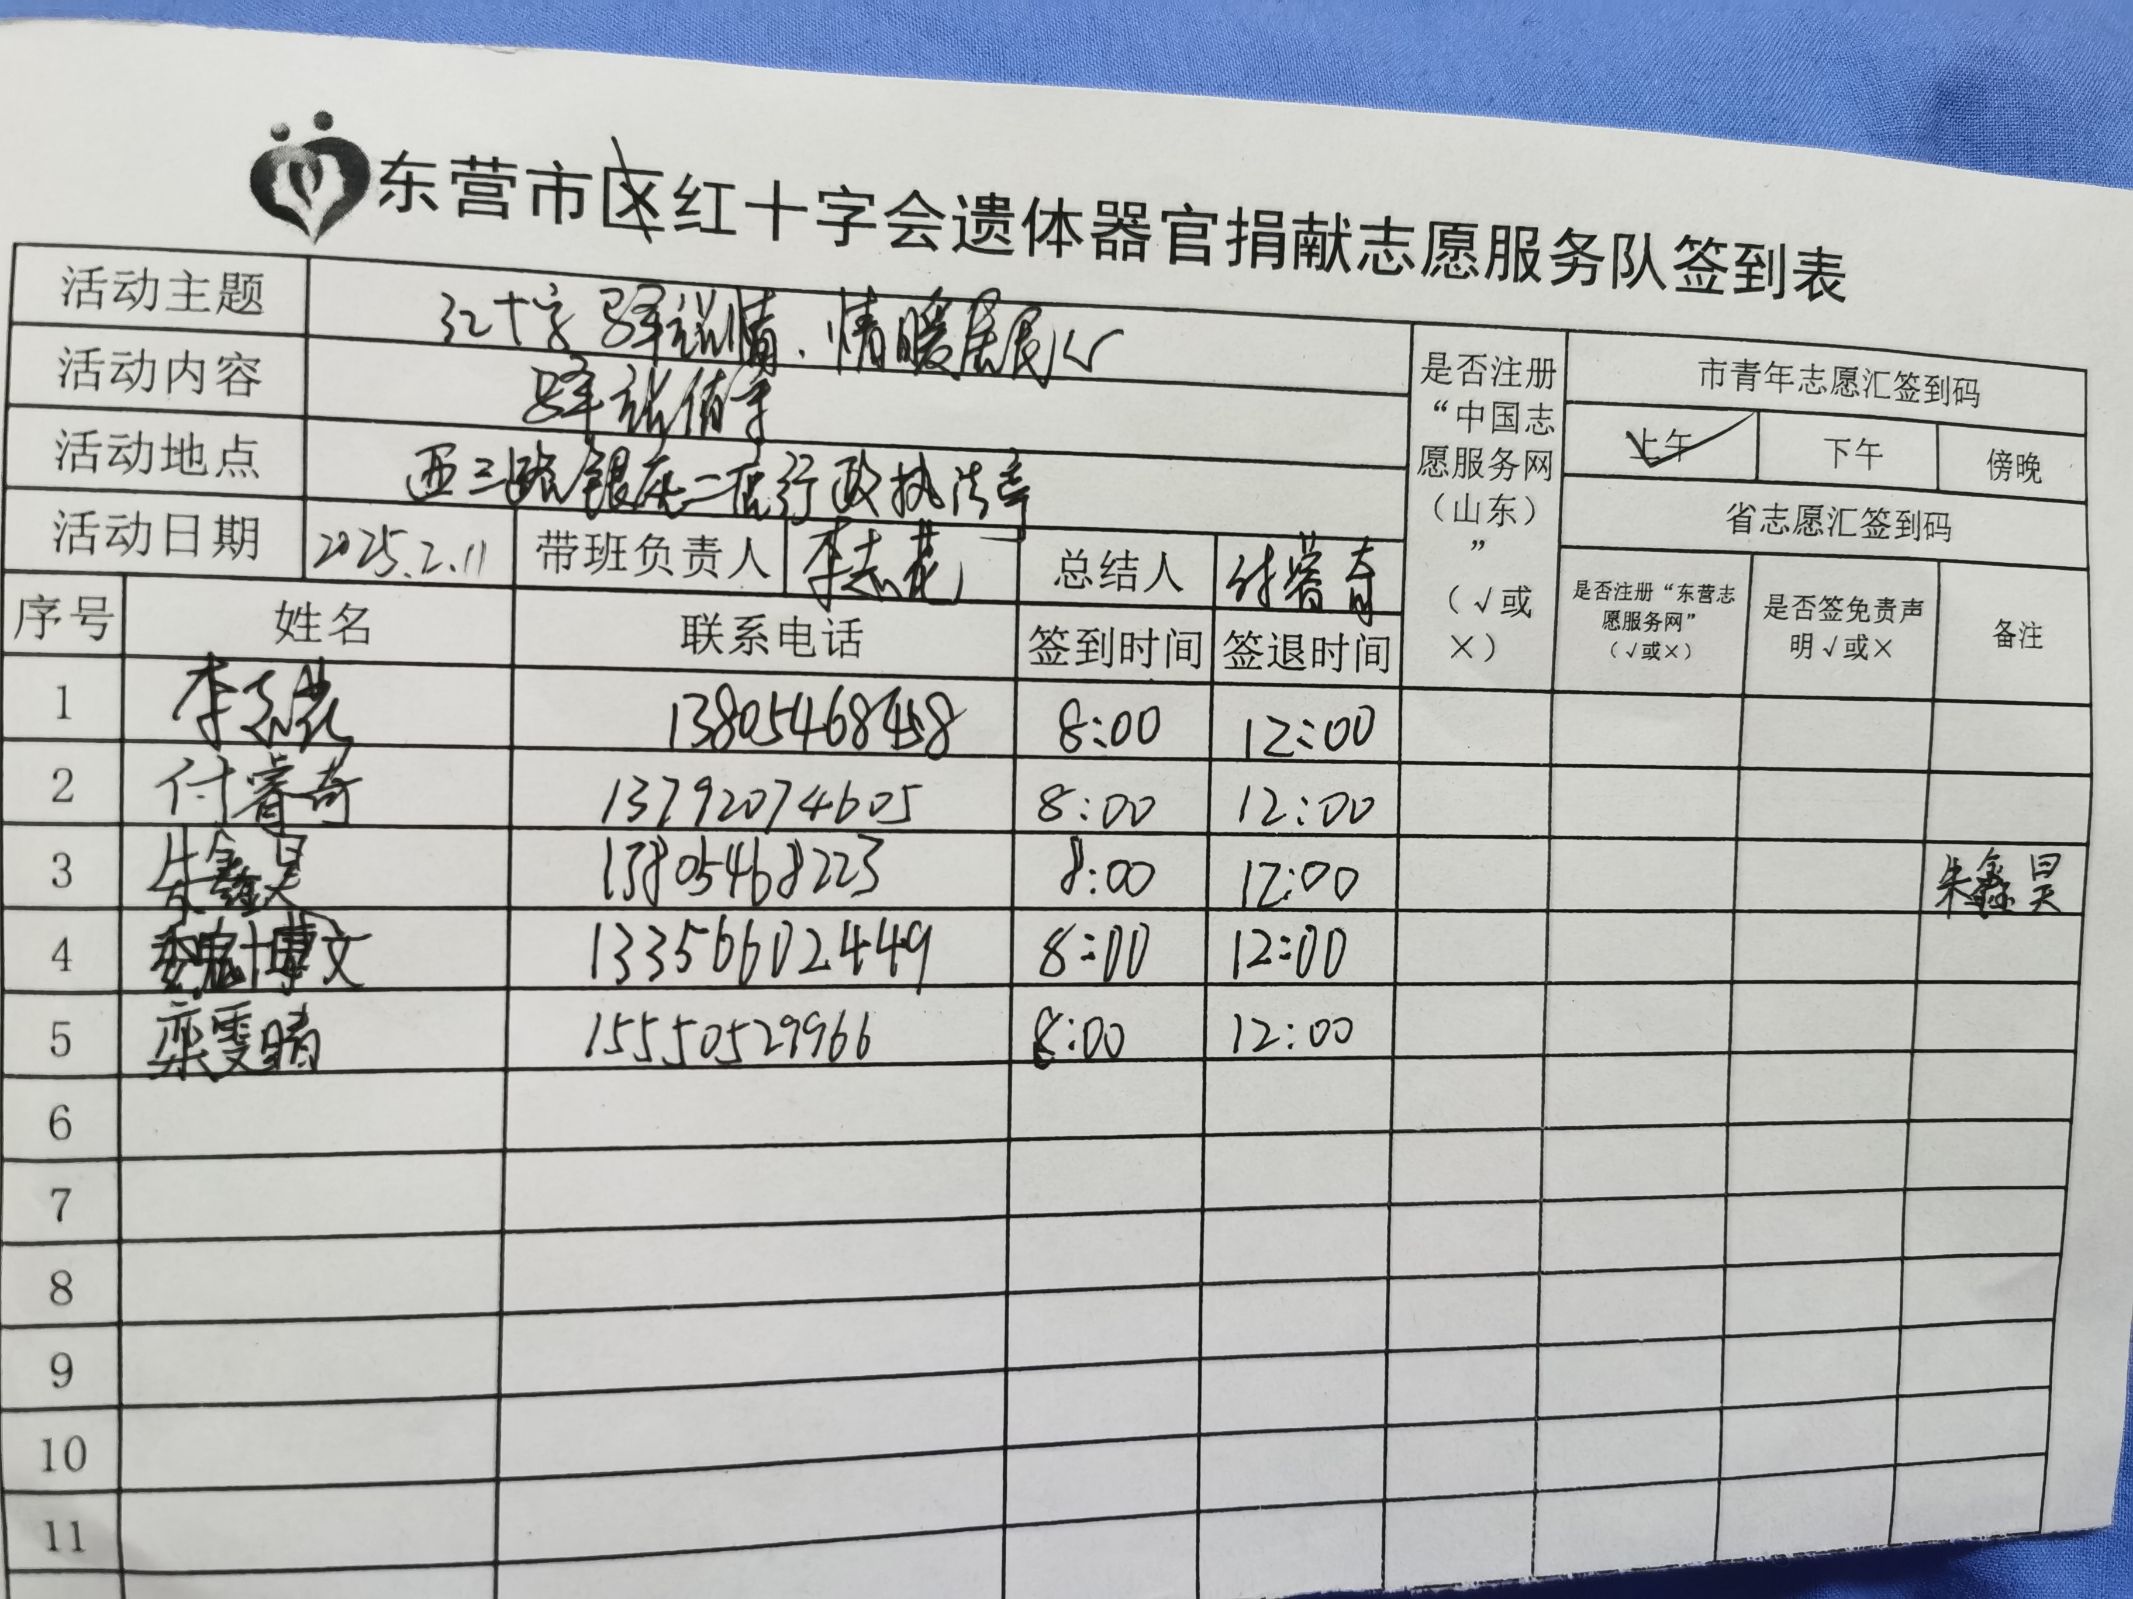 东营市区红十字会遗体器官捐献志愿服务队签到表
活动主题 红十字驿站情、情暖居民心
活动内容 驿站值守
活动地点 西三路银座二店行政执法亭
活动日期 2025.2.11 带班负责人 李志花 总结人 付睿奇
是否注册“中国志愿服务网（山东）”（√或×）
市青年志愿汇签到码
上午 下午 傍晚
省志愿汇签到码
是否注册“东营志愿服务网”（√或×） 是否签免责声明√或× 备注
序号 姓名 联系电话 签到时间 签退时间
1 李志花 13805468458 8:00 12:00
2 付睿奇 13792074605 8:00 12:00
3 朱鑫昊 13805468223 8:00 12:00 朱鑫昊
4 魏博文 13356602449 8:00 12:00
5 栾雯晴 15550529966 8:00 12:00
6
7
8
9
10
11